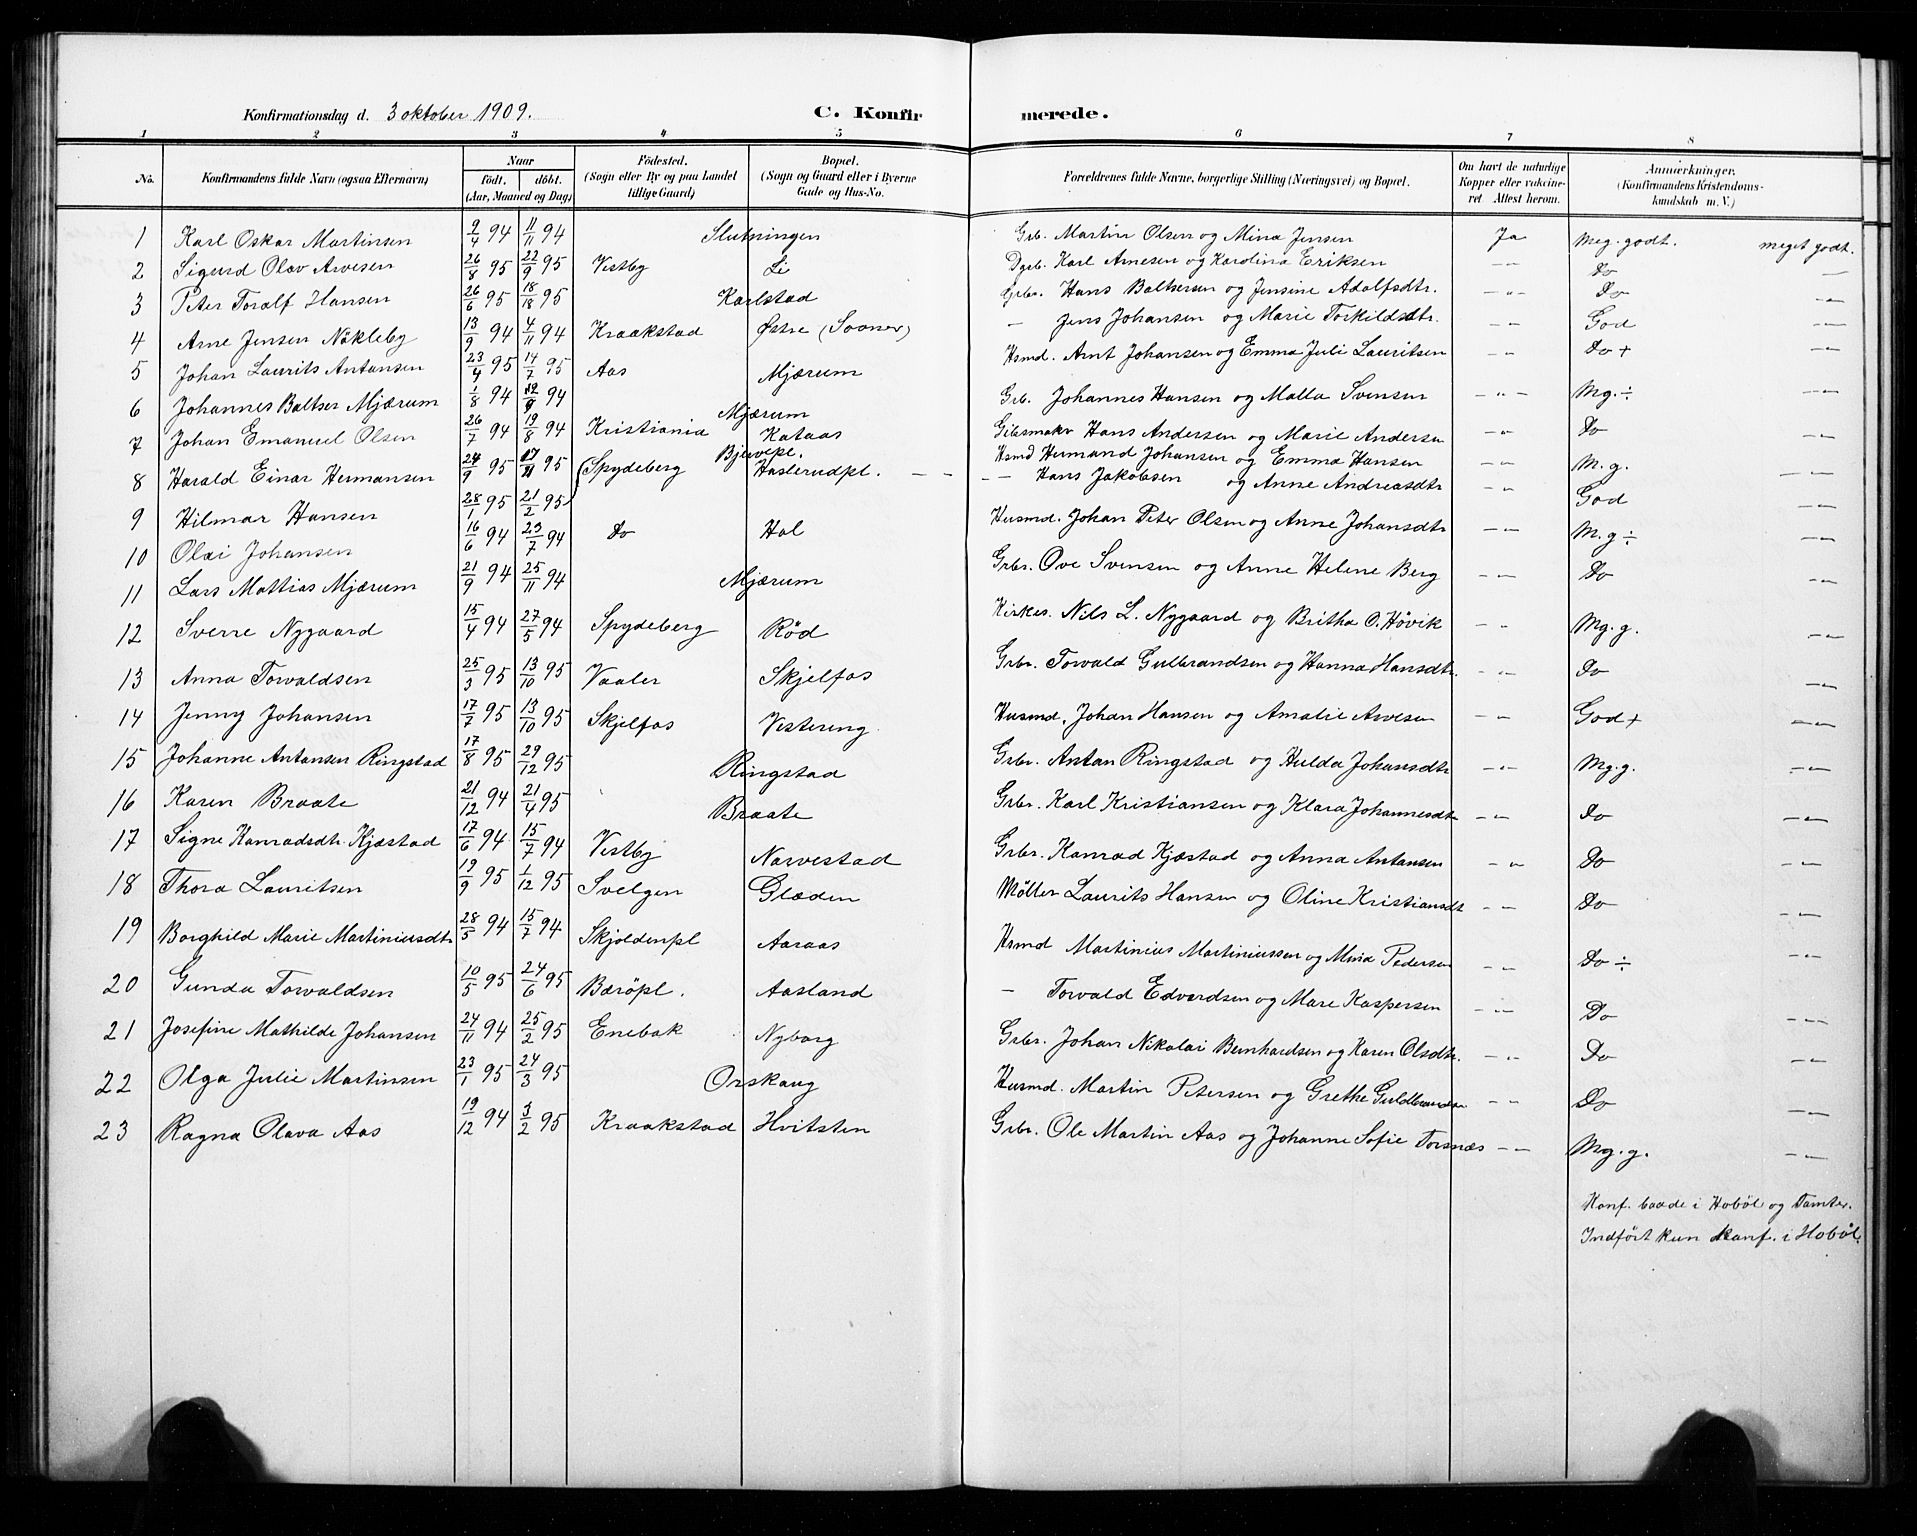 Konfirmationsdag d. 3 oktober 1909. C. Konfirmerede.
1 2 3 4 5 6 7 8
No. Konfirmandens fulde Navn (ogsaa Efternavn) Naar født. døbt. (Aar, Maaned og Dag) Fødested. (Sogn eller By og paa Landet tillige Gaard) Bopæl. (Sogn og Gaard eller i Byerne Gade og Hus-No. Forældrenes fulde Navne, borgerlige Stilling (Næringsvei) og Bopæl. Om havt de naturlige Kopper eller vakcineret. Attest herom. Anmærkninger. (Konfirmandens Kristendomskundskab m. V.)
1 Karl Oskar Martinsen 9/4 94 11/11 94 Slutningen Grb. Martin Olsen og Mina Jensen Ja Meg. godt. meget godt.
2 Sigurd Olav Arvesen 26/8 95 22/9 95 Vestby Li Dgrb. Karl Arnesen og Karolina Eriksen -"- Do -"-
3 Peter Toralf Hansen 26/6 95 18/18 95 Karlstad Grbr. Hans Baltsersen og Jensine Adolfsdtr. -"- Do -"-
4 Arne Jensen Nökleby 13/9 94 4/11 94 Kraakstad Østre (Sooner) - Jens Johansen og Marie Torkildsdtr. -"- God -"-
5 Johan Laurits Antansen 23/4 95 14/7 95 Aas Mjærum Hsmd. Arnt Johansen og Emma Juli Lauritsen -"- Do + -"-
6 Johannes Baltser Mjærum 1/8 94 94 Mjærum Grb. Johannes Hansen og Matla Svensen -"- Mg. ÷ -"-
7 Johan Emanuel Olsen 26/7 94 19/8 94 Kristiania Kataas Gibsmakr Hans Andersen og Marie Andersen -"- Do -"-
8 Harald Einar Hermansen 24/9 95 95 Spydeberg Bjervepl. Haslerudpl. Hsmd Hermand Johansen og Emma Hansen -"- M. g. -"-
9 Hilmar Hansen 28/1 95 21/2 95 -"- Hans Jakobsen og Anne Andreasdtr -"- God -"-
10 Olai Johansen 16/6 94 23/7 94 Do Hol Husmd. Johan Peter Olsen og Anne Johansdtr -"- M. g ÷ -"-
11 Lars Mattias Mjærum 21/9 94 25/11 94 Mjærum Grbr. Ove Svensen og Anne Helene Berg -"- Do -"-
12 Sverre Nygaard 15/4 94 27/5 94 Spydeberg Rød Kirkes. Nils L. Nygaard og Britha O. Hövik -"- Mg. g. -"-
13 Anna Torvaldsen 25/3 95 13/10 95 Vaaler Skjelfos Grbr. Torvald Gulbrandsen og Hanna Hansdtr. -"- Do -"-
14 Jenny Johansen 17/7 95 13/10 95 Skjelfos Vestereng Husmd. Johan Hansen og Amalie Arvesen -"- God + -"-
15 Johanne Antansen Ringstad 17/8 95 29/12 95 Ringstad Grbr. Antan Ringstad og Hulda Johansdtr -"- Mg. g. -"-
16 Karen Braate 21/12 94 21/4 95 Braate Grbr. Karl Kristiansen og Klara Johannesdtr -"- Do -"-
17 Signe Konradsdtr. Kjæstad 17/6 94 15/7 94 Vestby Narvestad Grbr. Konrad Kjæstad og Anna Antansen -"- Do -"-
18 Thora Lauritsen 19/9 95 1/12 95 Svelgen Glæden Møller Laurits Hansen og Oline Kristiansdt -"- Do -"-
19 Borghild Marie Martiniusdtr 28/5 94 15/7 94 Skjoldenpl Aaraas Hsmd Martinius Martiniussen og Mina Pedersen -"- Do ÷ -"-
20 Gunda Torvaldsen 10/5 95 24/6 95 Bæröpl. Aasland - Torvald Edvardsen og Mare Kaspersen -"- Do -"-
21 Josefine Mathilde Johansen 24/11 94 25/2 95 Enebak Nyborg Grbr. Johan Nikolai Bernhardsen og Karen Olsdtr. -"- Do -"-
22 Olga Julie Martinsen 23/1 95 24/3 95 Orskaug Husmd. Martin Petersen og Grethe Guldbrandsn -"- Do -"-
23 Ragna Olava Aas 19/12 94 3/2 95 Kraakstad Hvitsten Grbr. Ole Martin Aas og Johanne Sofie Torsnæs -"- Mg. g. -"-
Konf. baade i Hobøl og Tomter.
Indført kun konf. i Hobøl.